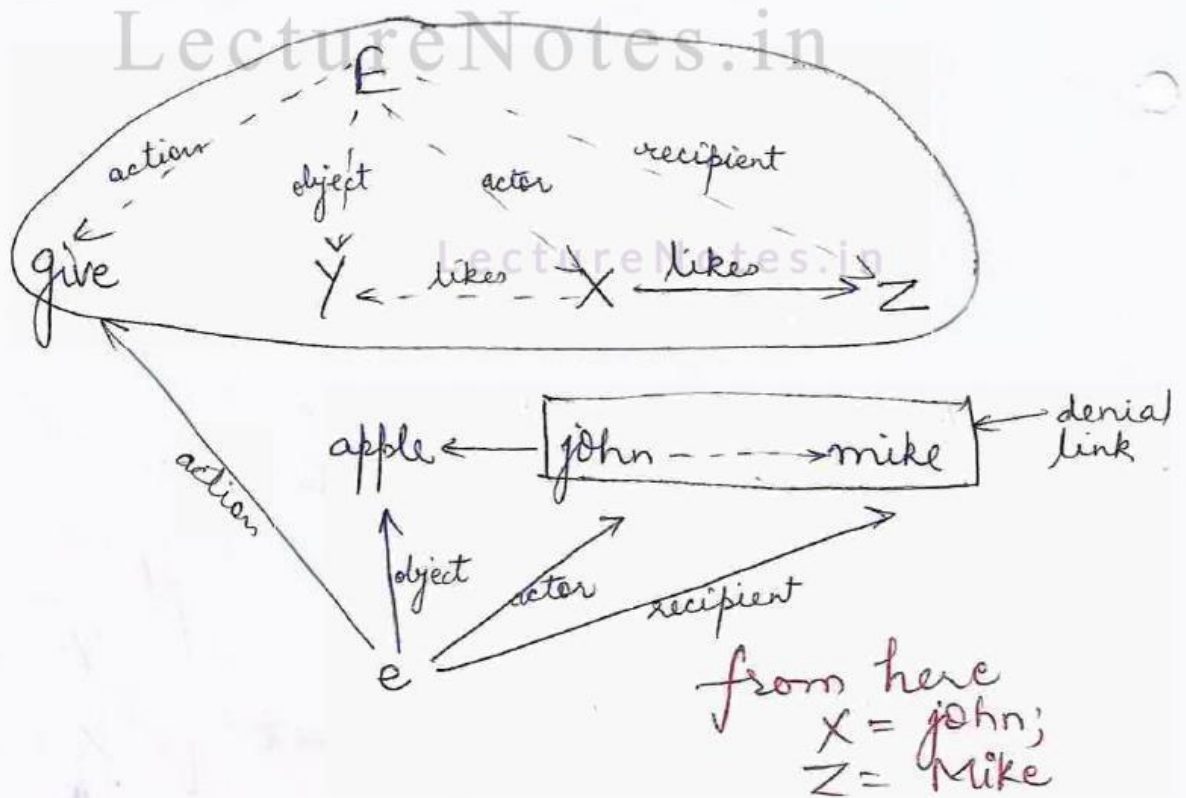 LectureNotes.in
E
action
object
actor
recipient
LectureNotes.in
give
Y
likes
X
likes
Z
apple
john
mike
denial
link
action
object
actor
recipient
e
from here
X = john;
Z = Mike